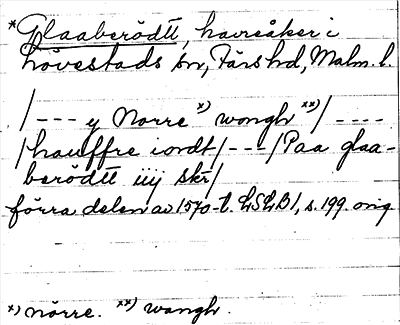 *Glaaberödtt, havreåker i
hövestads sn, Färs hd, Malm. l.
/--- y Norre x) wongh xx)/ ----
/hauffre iordt/---/Paa glaa-
berödtt iiij skr/
förra delen av 1570-t. LSLB1, s. 199. orig
x) nörre. xx) wangh.